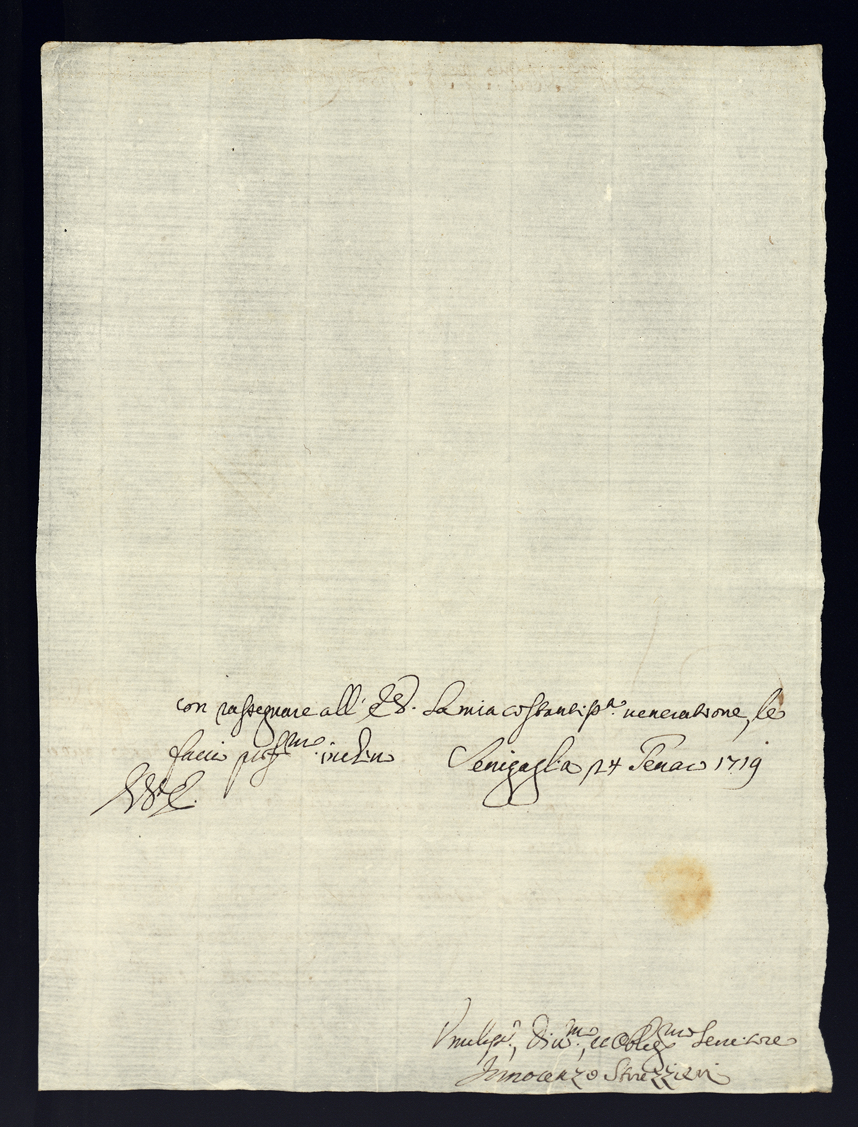 con rassegnare all' E. V. la mia costantiss.ª venerazione, le
faccio prof.mo inchino Senigaglia 24 Genaro 1719
Umiliss.º, Div.mo, et Oblig.mo Servitore
Innocenzo Struzzieri